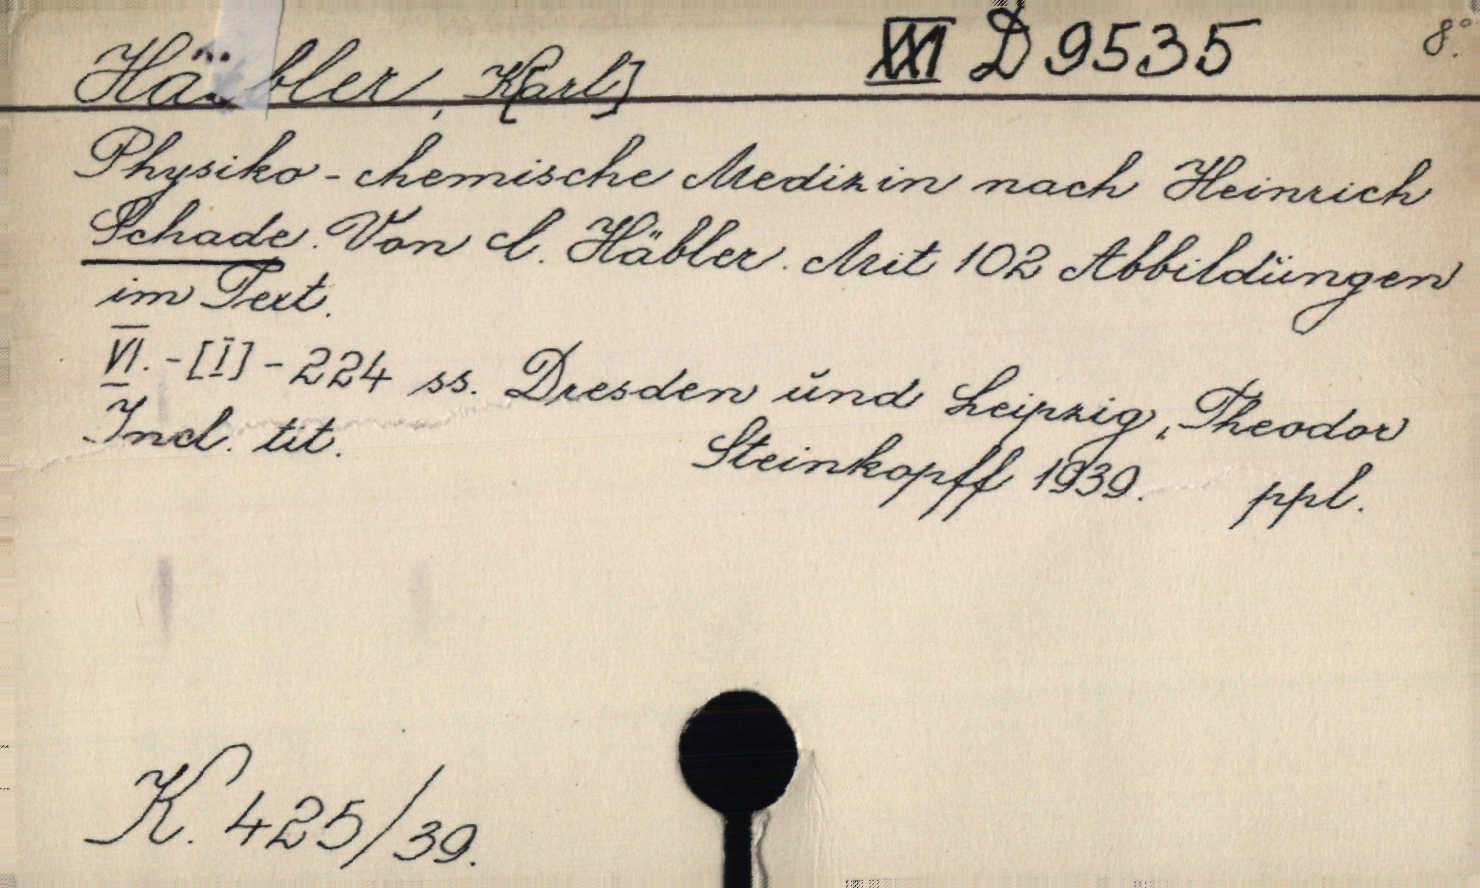 Häbler, K[arl] XXI D 9535 8°.
Physiko-chemische Medizin nach Heinrich
Schade. Von C. Häbler. Mit 102 Abbildungen
im Text.
VI.-[I]-224 ss. Dresden und Leipzig, Theodor
Incl. tit. Steinkopff 1939. ppl.
K. 425/39.